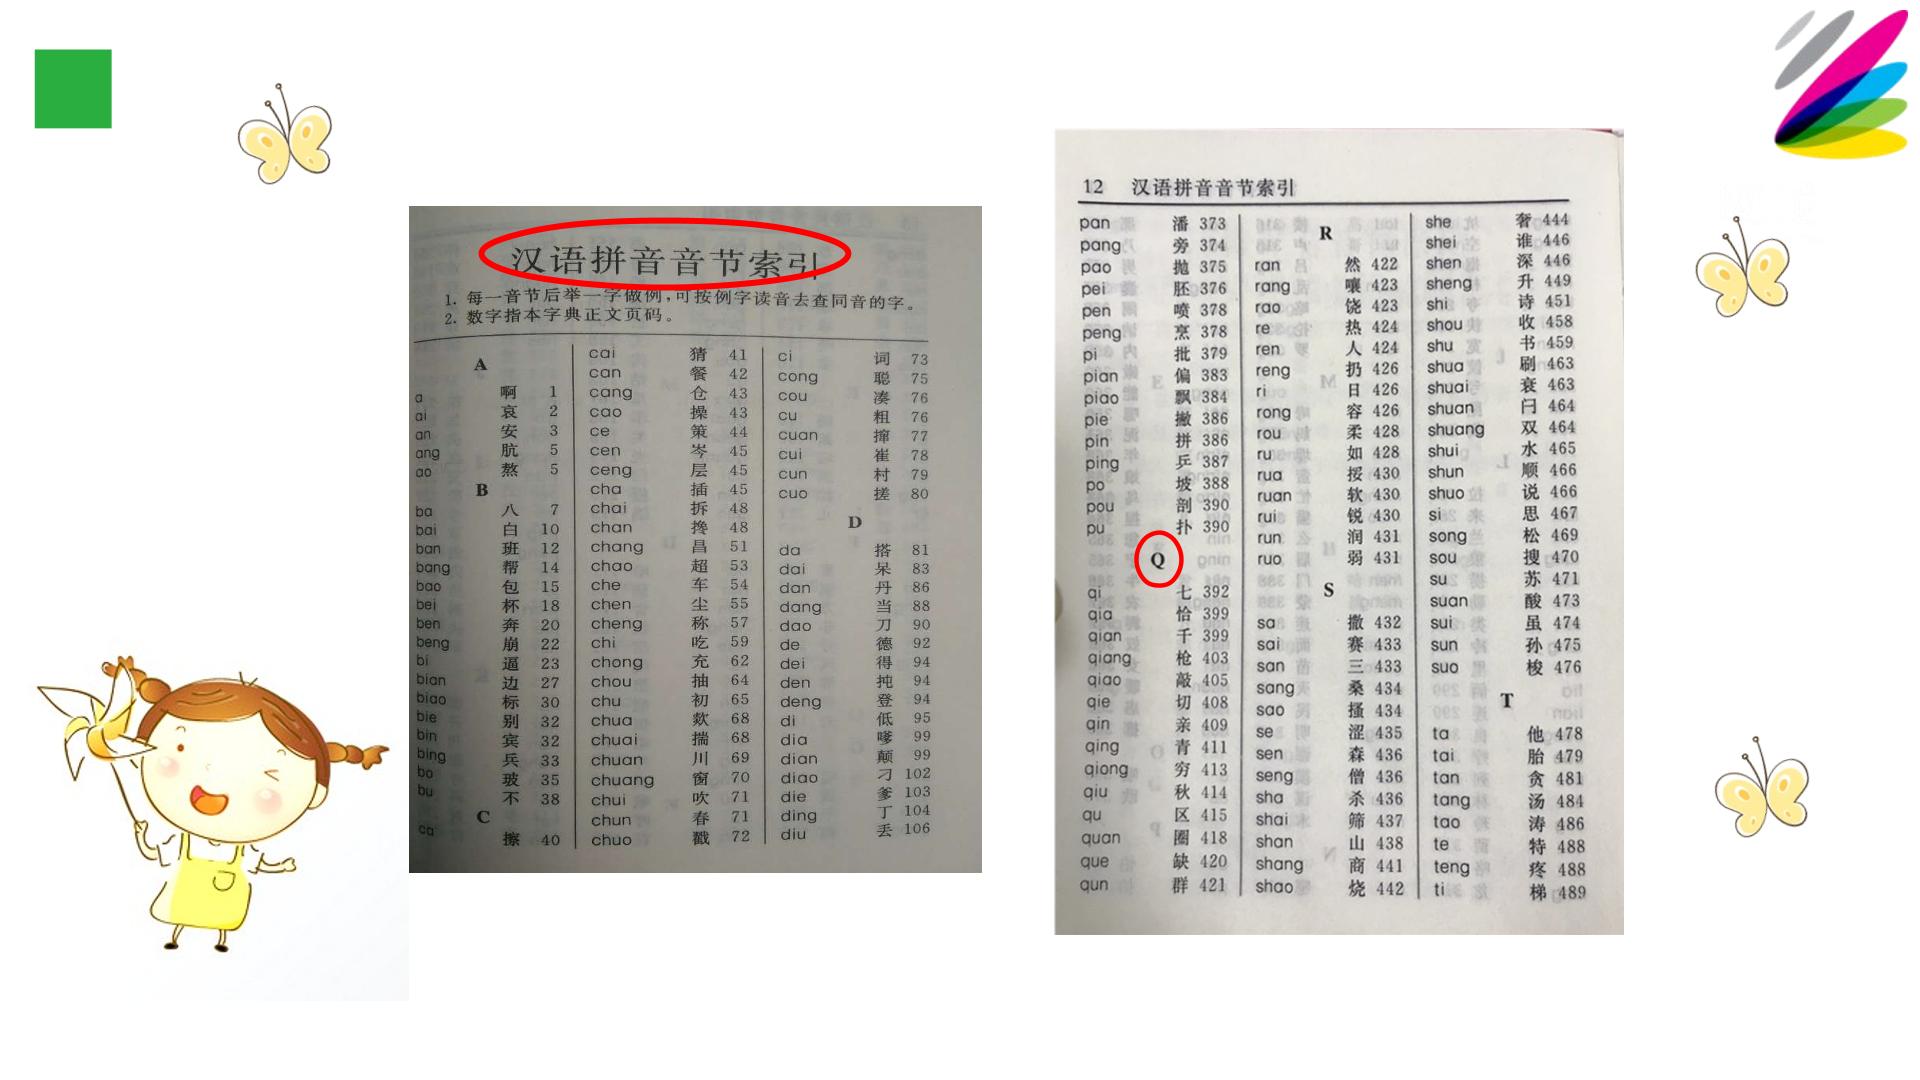 汉语拼音音节索引
1. 每一音节后举一字做例,可按例字读音去查同音的字。
2. 数字指本字典正文页码。
A
a 啊 1
ai 哀 2
an 安 3
ang 肮 5
ao 熬 5
B
ba 八 7
bai 白 10
ban 班 12
bang 帮 14
bao 包 15
bei 杯 18
ben 奔 20
beng 崩 22
bi 逼 23
bian 边 27
biao 标 30
bie 别 32
bin 宾 32
bing 兵 33
bo 玻 35
bu 不 38
C
ca 擦 40
cai 猜 41
can 餐 42
cang 仓 43
cao 操 43
ce 策 44
cen 岑 45
ceng 层 45
cha 插 45
chai 拆 48
chan 搀 48
chang 昌 51
chao 超 53
che 车 54
chen 尘 55
cheng 称 57
chi 吃 59
chong 充 62
chou 抽 64
chu 初 65
chua 欻 68
chuai 揣 68
chuan 川 69
chuang 窗 70
chui 吹 71
chun 春 71
chuo 戳 72
ci 词 73
cong 聪 75
cou 凑 76
cu 粗 76
cuan 撺 77
cui 崔 78
cun 村 79
cuo 搓 80
D
da 搭 81
dai 呆 83
dan 丹 86
dang 当 88
dao 刀 90
de 德 92
dei 得 94
den 扽 94
deng 登 94
di 低 95
dia 嗲 99
dian 颠 99
diao 刁 102
die 爹 103
ding 丁 104
diu 丢 106
12 汉语拼音音节索引
pan 潘 373
pang 旁 374
pao 抛 375
pei 胚 376
pen 喷 378
peng 烹 378
pi 批 379
pian 偏 383
piao 飘 384
pie 撇 386
pin 拼 386
ping 乒 387
po 坡 388
pou 剖 390
pu 扑 390
Q
qi 七 392
qia 恰 399
qian 千 399
qiang 枪 403
qiao 敲 405
qie 切 408
qin 亲 409
qing 青 411
qiong 穷 413
qiu 秋 414
qu 区 415
quan 圈 418
que 缺 420
qun 群 421
R
ran 然 422
rang 嚷 423
rao 饶 423
re 热 424
ren 人 424
reng 扔 426
ri 日 426
rong 容 426
rou 柔 428
ru 如 428
rua 挼 430
ruan 软 430
rui 锐 430
run 润 431
ruo 弱 431
S
sa 撒 432
sai 赛 433
san 三 433
sang 桑 434
sao 搔 434
se 涩 435
sen 森 436
seng 僧 436
sha 杀 436
shai 筛 437
shan 山 438
shang 商 441
shao 烧 442
she 奢 444
shei 谁 446
shen 深 446
sheng 升 449
shi 诗 451
shou 收 458
shu 书 459
shua 刷 463
shuai 衰 463
shuan 闩 464
shuang 双 464
shui 水 465
shun 顺 466
shuo 说 466
si 思 467
song 松 469
sou 搜 470
su 苏 471
suan 酸 473
sui 虽 474
sun 孙 475
suo 梭 476
T
ta 他 478
tai 胎 479
tan 贪 481
tang 汤 484
tao 涛 486
te 特 488
teng 疼 488
ti 梯 489